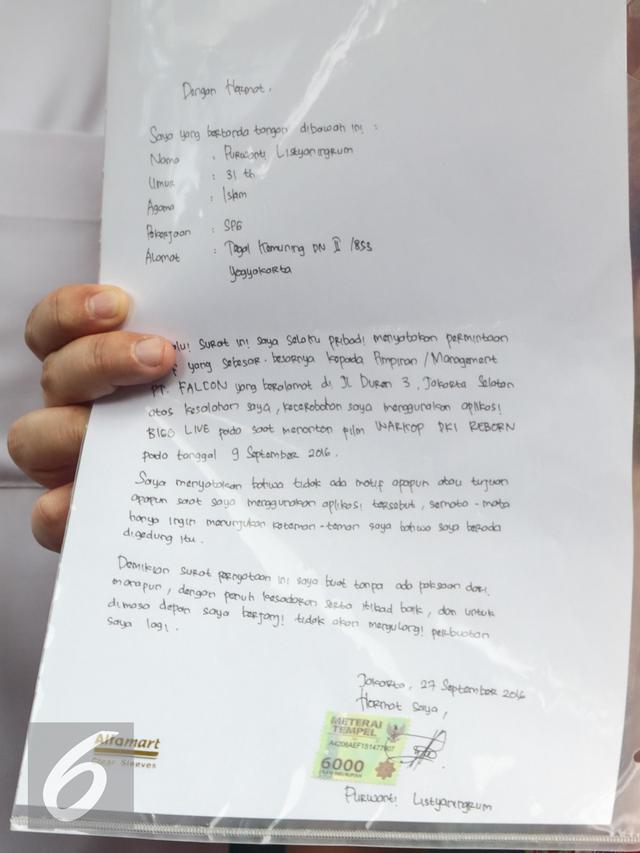 Dengan Hormat,
Saya yang bertanda tangan dibawah ini :
Nama : Purwanti Listyaningrum
Umur : 31 th
Agama : Islam
Pekerjaan : SPG
Alamat : Tegal Kemuning DN II /853
Yogyakarta
lui surat ini saya selaku pribadi menyatakan permintaan
f yang sebesar-besarnya kepada Pimpinan /Management
PT. FALCON yang beralamat di Jl Duren 3, Jakarta Selatan
atas kesalahan saya, kecerobohan saya menggunakan aplikasi
BIGO LIVE pada saat menonton film WARKOP DKI REBORN
pada tanggal 9 September 2016.
Saya menyatakan bahwa tidak ada motif apapun atau tujuan
apapun saat saya menggunakan aplikasi tersebut, semata-mata
hanya ingin menunjukan keteman-teman saya bahwa saya berada
digedung itu.
Demikian surat pernyataan ini saya buat tanpa ada paksaan dari
manapun, dengan penuh kesadaran serta itibad baik, dan untuk
dimasa depan saya berjanji tidak akan mengulangi perbuatan
saya lagi.
Jakarta, 27 September 2016
Hormat Saya,
METERAI
TEMPEL
A4206AEF151477907
6000
Purwanti Listyaningrum
Alfamart
Clear Sleeves
6